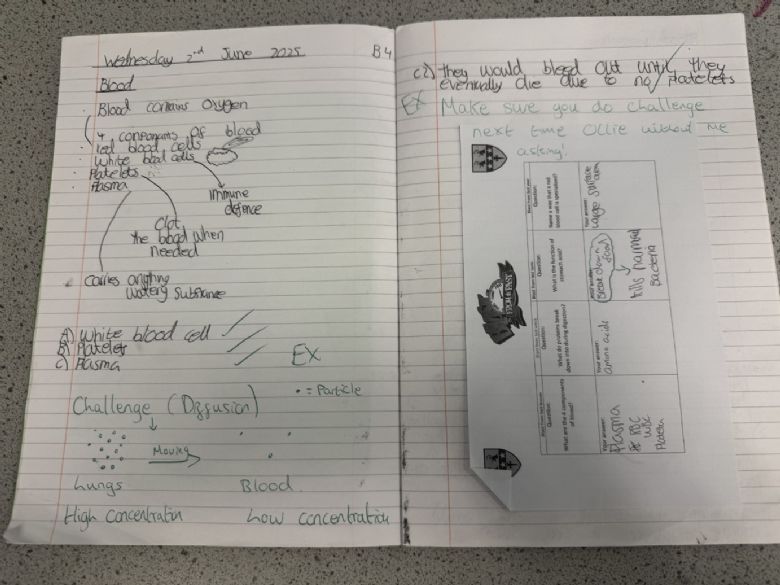 Wednesday 2nd June 2025
B4
Blood
Blood contains Oxygen
4 components of blood
red blood cells
White blood cells
Platelets
Plasma
Immune
defence
Clot
the blood when
needed
Carries anything
watery substance
A) White blood cell
B) Platelet
C) Plasma
EX
Challenge (Diffusion)
• = Particle
Moving
Lungs
Blood
High Concentration
Low concentration
C2) they would bleed out until they
eventually die due to no platelets
EX Make sure you do challenge
next time Ollie without me
asking!
Question:
Name a way that a red
blood cell is specialised?
Your answer:
Large surface
area
Question:
What is the function of
stomach acid?
Your answer:
Break down
food
kills harmful
bacteria
Question:
What do proteins break
down into during digestion?
Your answer:
amino acids
Question:
What are the 4 components
of blood?
Your answer:
Plasma
RBC
WBC
Platelet